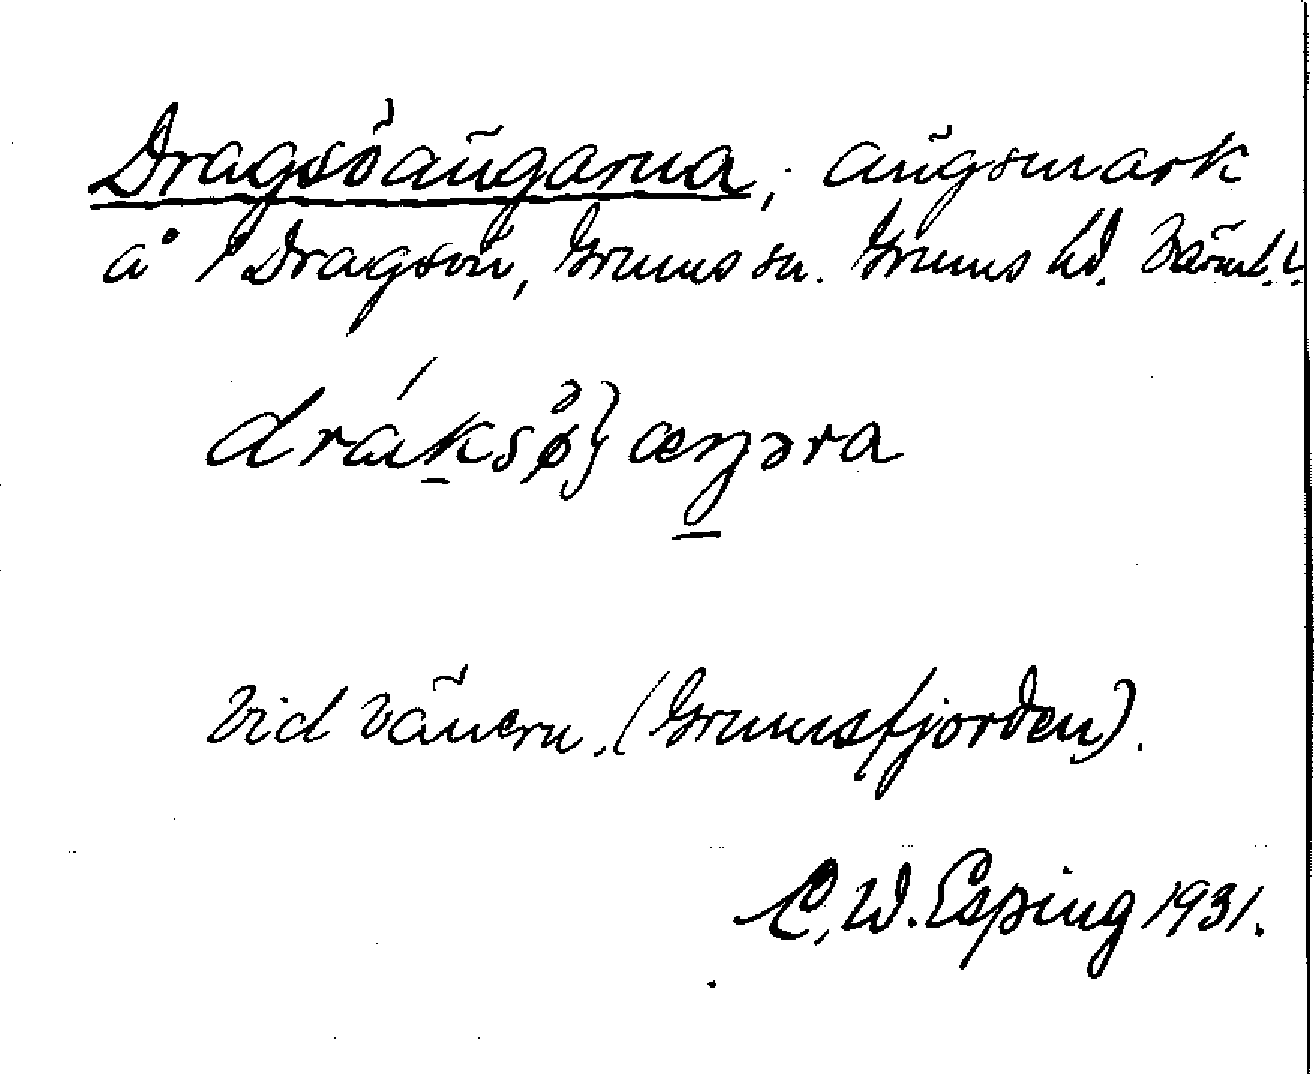 Dragsöängarna, ängsmark
å Dragsön, Grums sn. Grums hd. Värml. l.
dráksø}æŋəra
Vid Vänern. (Grumsfjorden).
C. W. Esping 1931.